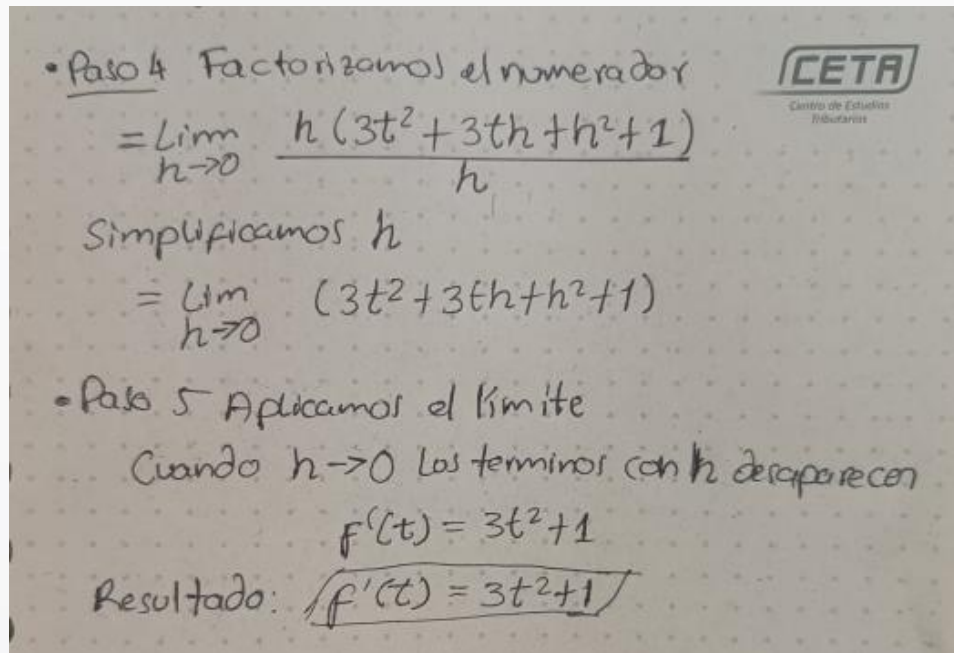 • Paso 4 Factorizamos el numerador
CETA
Centro de Estudios
Tributarios
= Lim h(3t² + 3th + h² + 1)
h→0 h
Simplificamos h
= Lim (3t² + 3th + h² + 1)
h→0
• Paso 5 Aplicamos el límite
Cuando h→0 Los terminos con h desaparecen
f'(t) = 3t² + 1
Resultado: f'(t) = 3t² + 1